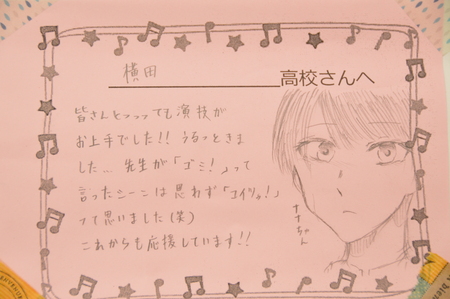 横田 高校さんへ
皆さんとっっっても演技が
お上手でした!! うるっときま
した… 先生が「ゴミ!」って
言ったシーンは思わず「コイツっ!」
って思いました(笑)
これからも応援しています!!
ナナちゃん